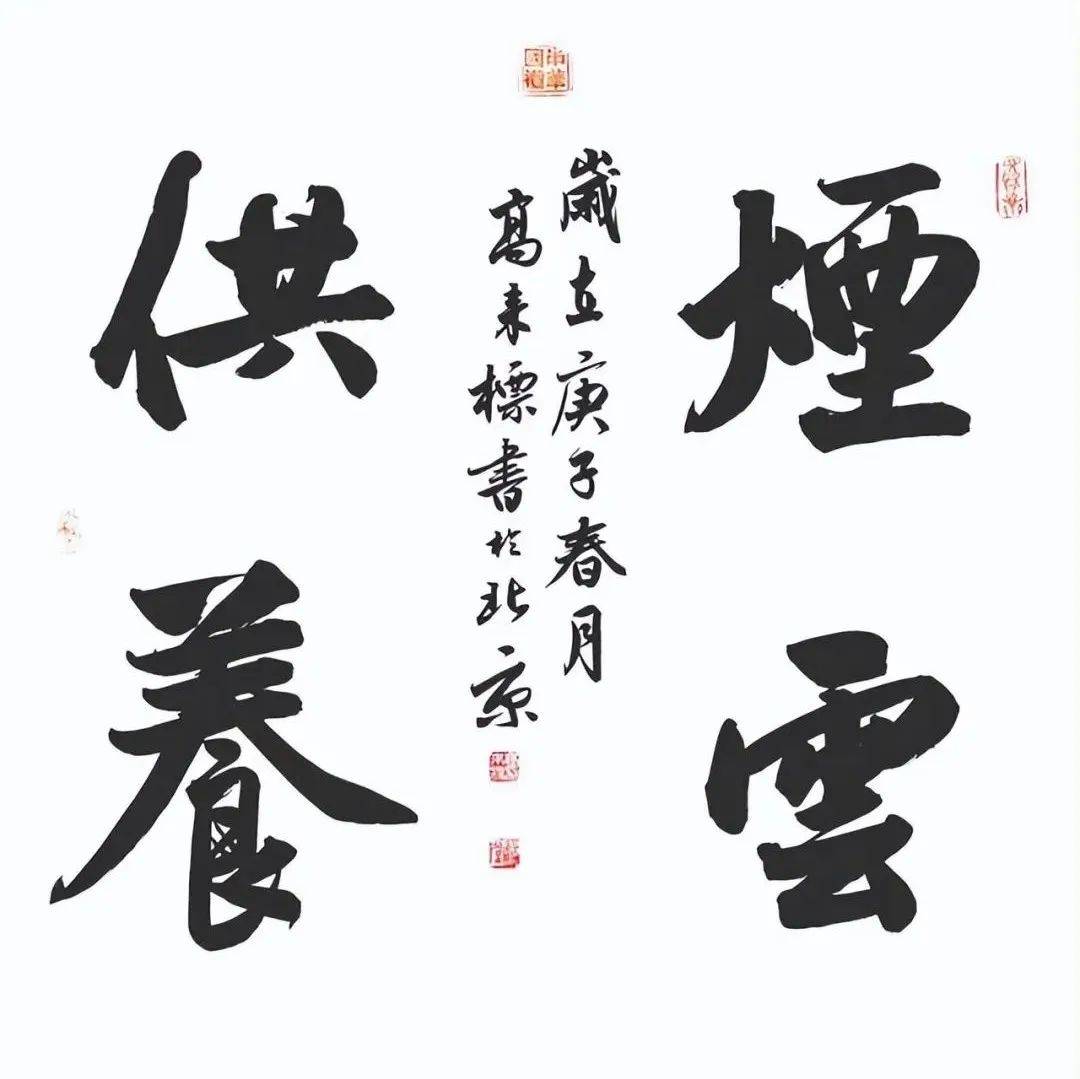 煙雲
供養
歲在庚子春月
高来標書於北京
中華國禮